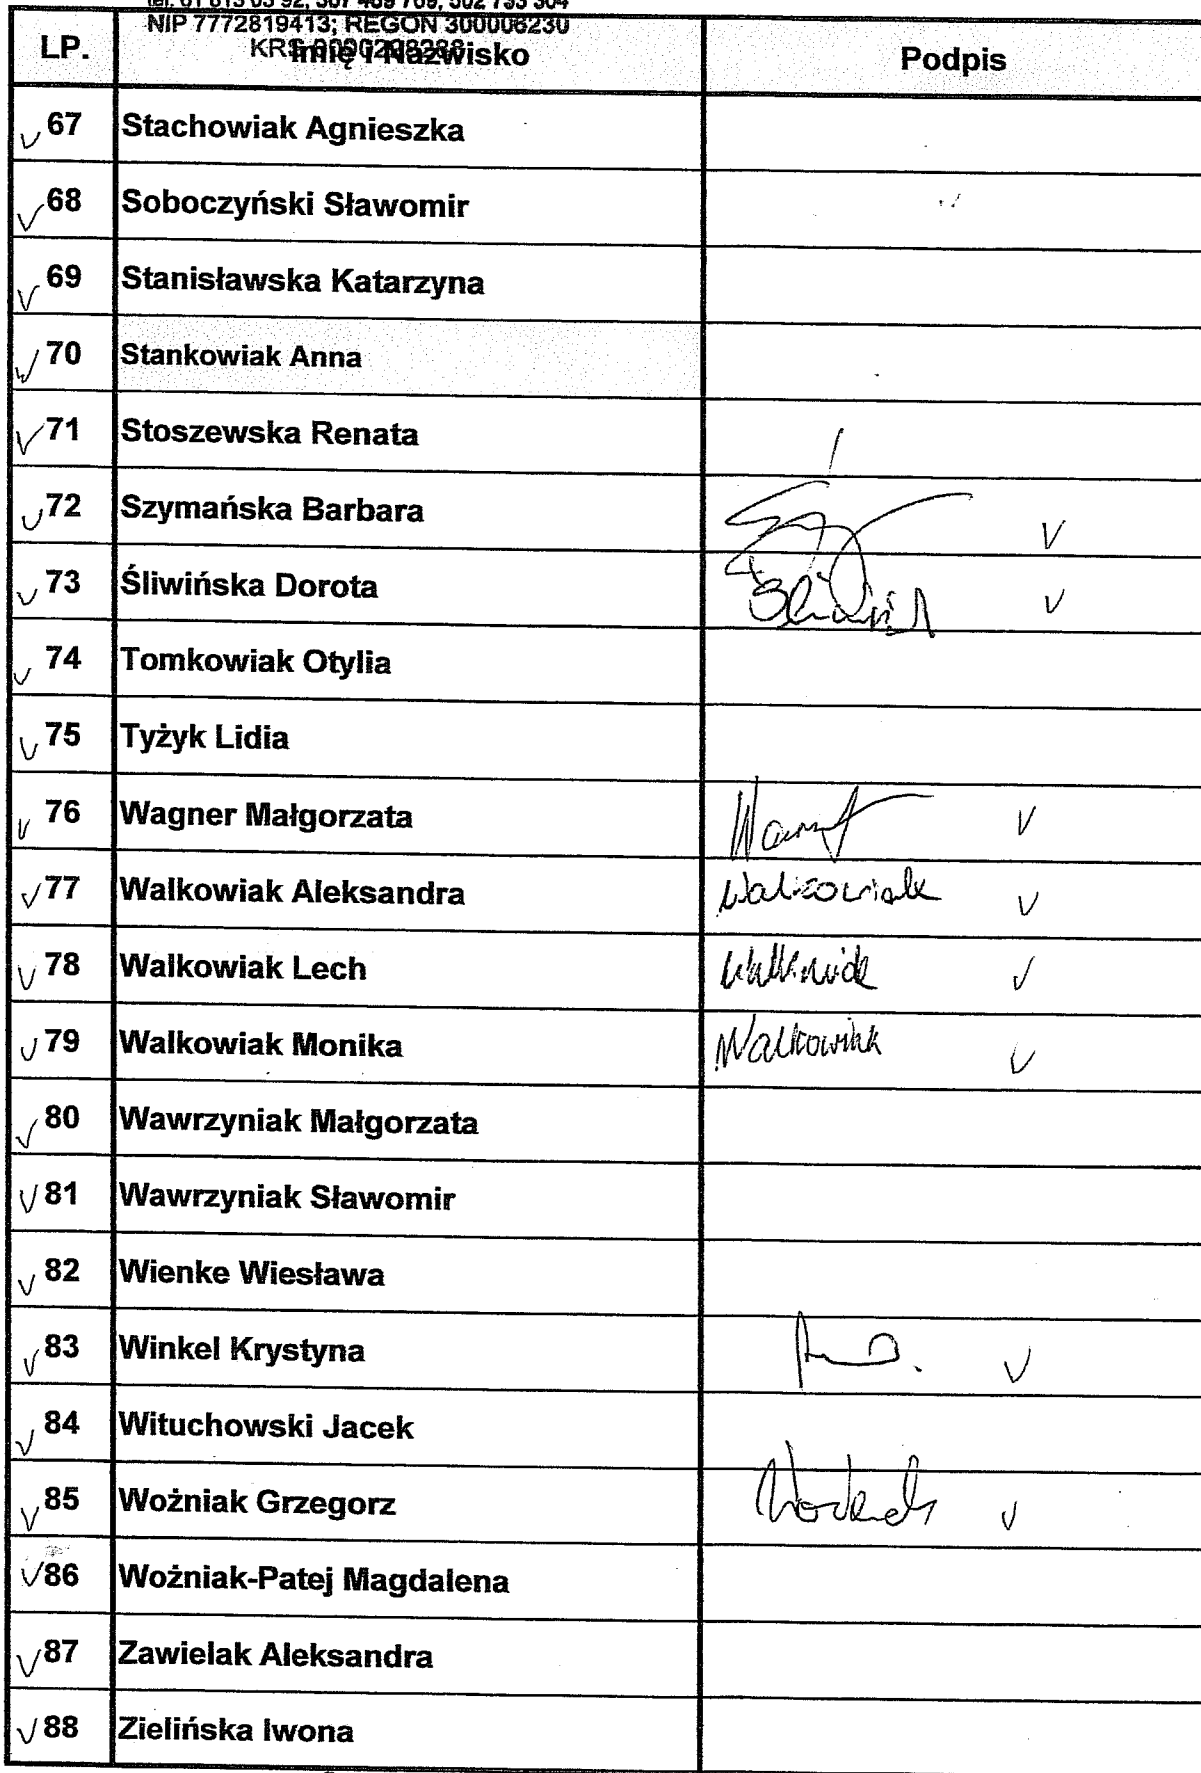 tel. 61 813 03 92, 507 489 709, 502 733 304
NIP 7772819413; REGON 300006230
LP. Imię i Nazwisko Podpis
67 Stachowiak Agnieszka
68 Soboczyński Sławomir
69 Stanisławska Katarzyna
70 Stankowiak Anna
71 Stoszewska Renata
72 Szymańska Barbara V
73 Śliwińska Dorota V
74 Tomkowiak Otylia
75 Tyżyk Lidia
76 Wagner Małgorzata V
77 Walkowiak Aleksandra Walkowiak V
78 Walkowiak Lech Walkowiak V
79 Walkowiak Monika Walkowiak V
80 Wawrzyniak Małgorzata
81 Wawrzyniak Sławomir
82 Wienke Wiesława
83 Winkel Krystyna V
84 Wituchowski Jacek
85 Woźniak Grzegorz V
86 Woźniak-Patej Magdalena
87 Zawielak Aleksandra
88 Zielińska Iwona